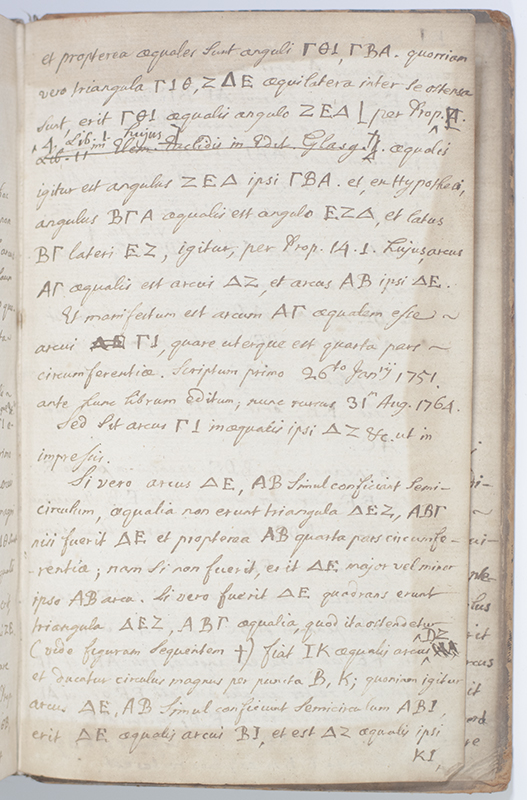 et propterea æquales sunt anguli ΓΘΙ, ΓΒΑ. quoniam
vero triangula ΓΙΘ, ΖΔΕ æquilatera inter se ostensa
sunt, erit ΓΘΙ æqualis angulo ΖΕΔ [per Prop.
4. Lib. 1. hujus]
Lib. 11 Elem. Euclidis in Edit. Glasg. æqualis
igitur est angulus ΖΕΔ ipsi ΓΒΑ. et ex Hypothesi,
angulus ΒΓΑ æqualis est angulo ΕΖΔ, et latus
ΒΓ lateri ΕΖ; igitur, per Prop. 14. 1. hujus, arcus
ΑΓ æqualis est arcui ΔΖ, et arcus ΑΒ ipsi ΔΕ.
Et manifestum est arcum ΑΓ æqualem esse ~
arcui ΓΙ, quare uterque est quarta pars ~
circumferentiæ. Scriptum primo 26to Janrij 1751.
ante hunc librum editum; nunc rursus 31m Aug. 1764.
Sed sit arcus ΓΙ inæqualis ipsi ΔΖ &c. ut in
impressis.
Si vero arcus ΔΕ, ΑΒ simul conficiunt Semi-
circulum, æqualia non erunt triangula ΔΕΖ, ΑΒΓ
nisi fuerit ΔΕ et propterea ΑΒ quarta pars circumfe-
-rentiæ; nam si non fuerit, erit ΔΕ major vel minor
ipso ΑΒ arcu. Si vero fuerit ΔΕ quadrans erunt
triangula ΔΕΖ, ΑΒΓ æqualia, quod ita ostendetur
(vide figuram Sequentem †) fiat ΙΚ æqualis arcui DZ
et ducatur circulus magnus per puncta Β, Κ; quoniam igitur
arcus ΔΕ, ΑΒ simul conficiunt Semicirculum ΑΒΙ,
erit ΔΕ æqualis arcui ΒΙ, et est ΔΖ æqualis ipsi
ΚΙ,